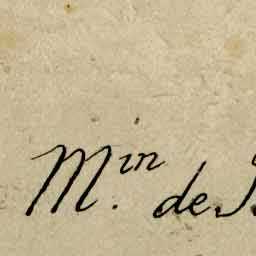 M.in de